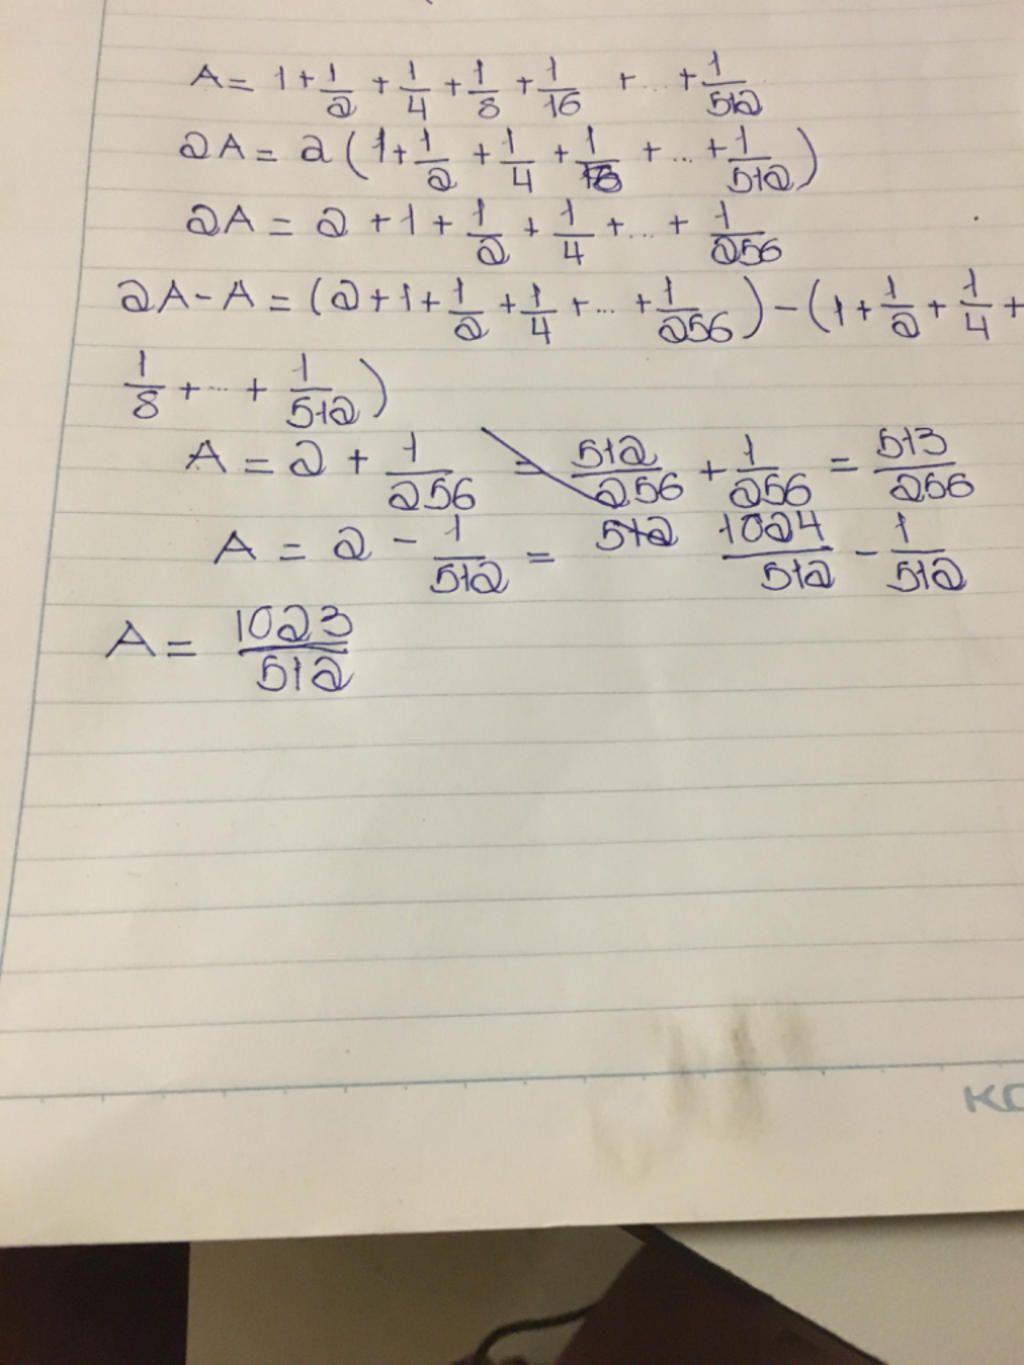 A = 1 + 1/2 + 1/4 + 1/8 + 1/16 + ... + 1/512
2A = 2 (1 + 1/2 + 1/4 + 1/8 + ... + 1/512)
2A = 2 + 1 + 1/2 + 1/4 + ... + 1/256
2A - A = (2 + 1 + 1/2 + 1/4 + ... + 1/256) - (1 + 1/2 + 1/4 +
1/8 + ... + 1/512)
A = 2 + 1/256 = 512/256 + 1/256 = 513/256
A = 2 - 1/512 = 512 1024/512 - 1/512
A = 1023/512